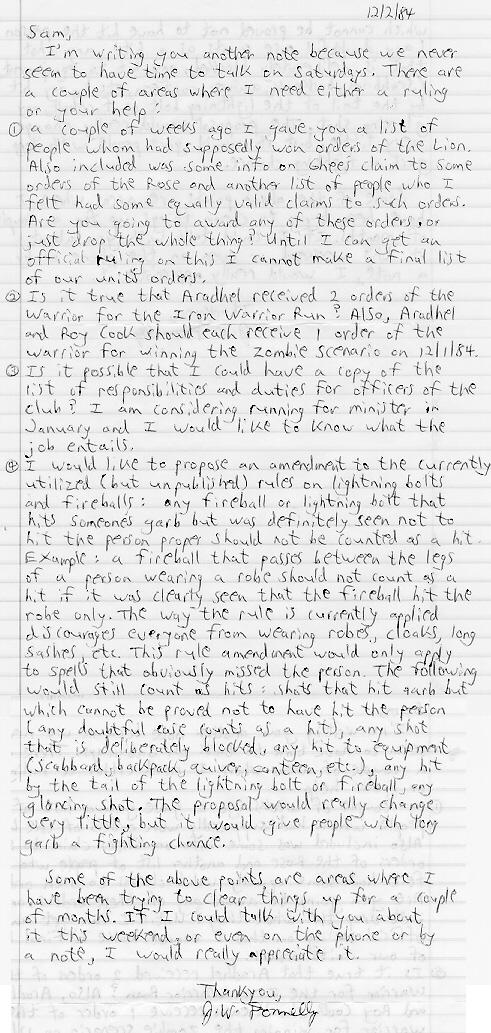 12/2/84
Sam,
I'm writing you another note because we never
seem to have time to talk on Saturdays. There are
a couple of areas where I need either a ruling
or your help:
① a couple of weeks ago I gave you a list of
people whom had supposedly won orders of the Lion.
Also included was some info on Ghees claim to some
orders of the Rose and another list of people who I
felt had some equally valid claims to such orders.
Are you going to award any of these orders, or
just drop the whole thing? Until I can get an
official ruling on this I cannot make a final list
of our units orders.
② Is it true that Aradhel received 2 orders of the
Warrior for the Iron Warrior Run? Also, Aradhel
and Roy Cook should each receive 1 order of the
warrior for winning the zombie scenario on 12/1/84.
③ Is it possible that I could have a copy of the
list of responsibilities and duties for officers of the
club? I am considering running for minister in
January and I would like to know what the
job entails.
④ I would like to propose an amendment to the currently
utilized (but unpublished) rules on lightning bolts
and fireballs: any fireball or lightning bolt that
hits someones garb but was definitely seen not to
hit the person proper should not be counted as a hit.
Example: a fireball that passes between the legs
of a person wearing a robe should not count as a
hit if it was clearly seen that the fireball hit the
robe only. The way the rule is currently applied
discourages everyone from wearing robes, cloaks, long
sashes, etc. This rule amendment would only apply
to spells that obviously missed the person. The following
would still count as hits: shots that hit garb but
which cannot be proved not to have hit the person
(any doubtful case counts as a hit), any shot
that is deliberately blocked, any hit to equipment
(scabbard, backpack, quiver, canteen, etc.), any hit
by the tail of the lightning bolt or fireball, any
glancing shot. The proposal would really change
very little, but it would give people with long
garb a fighting chance.
Some of the above points are areas where I
have been trying to clear things up for a couple
of months. If I could talk with you about
it this weekend, or even on the phone or by
a note, I would really appreciate it.
Thankyou,
J.W. Donnelly